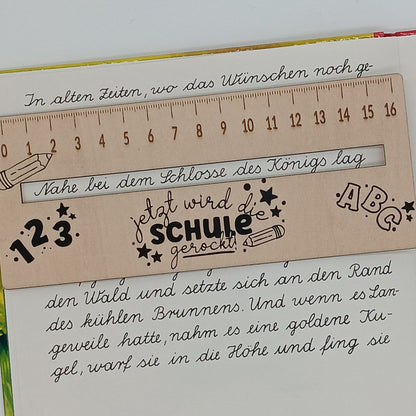 In alten Zeiten, wo das Wünschen noch ge-
0 1 2 3 4 5 6 7 8 9 10 11 12 13 14 15 16
Nahe bei dem Schlosse des Königs lag
jetzt wird die
123 SCHULE ABC
gerockt!
den Wald und setzte sich an den Rand
des kühlen Brunnens. Und wenn es Lan-
geweile hatte, nahm es eine goldene Ku-
gel, warf sie in die Höhe und fing sie